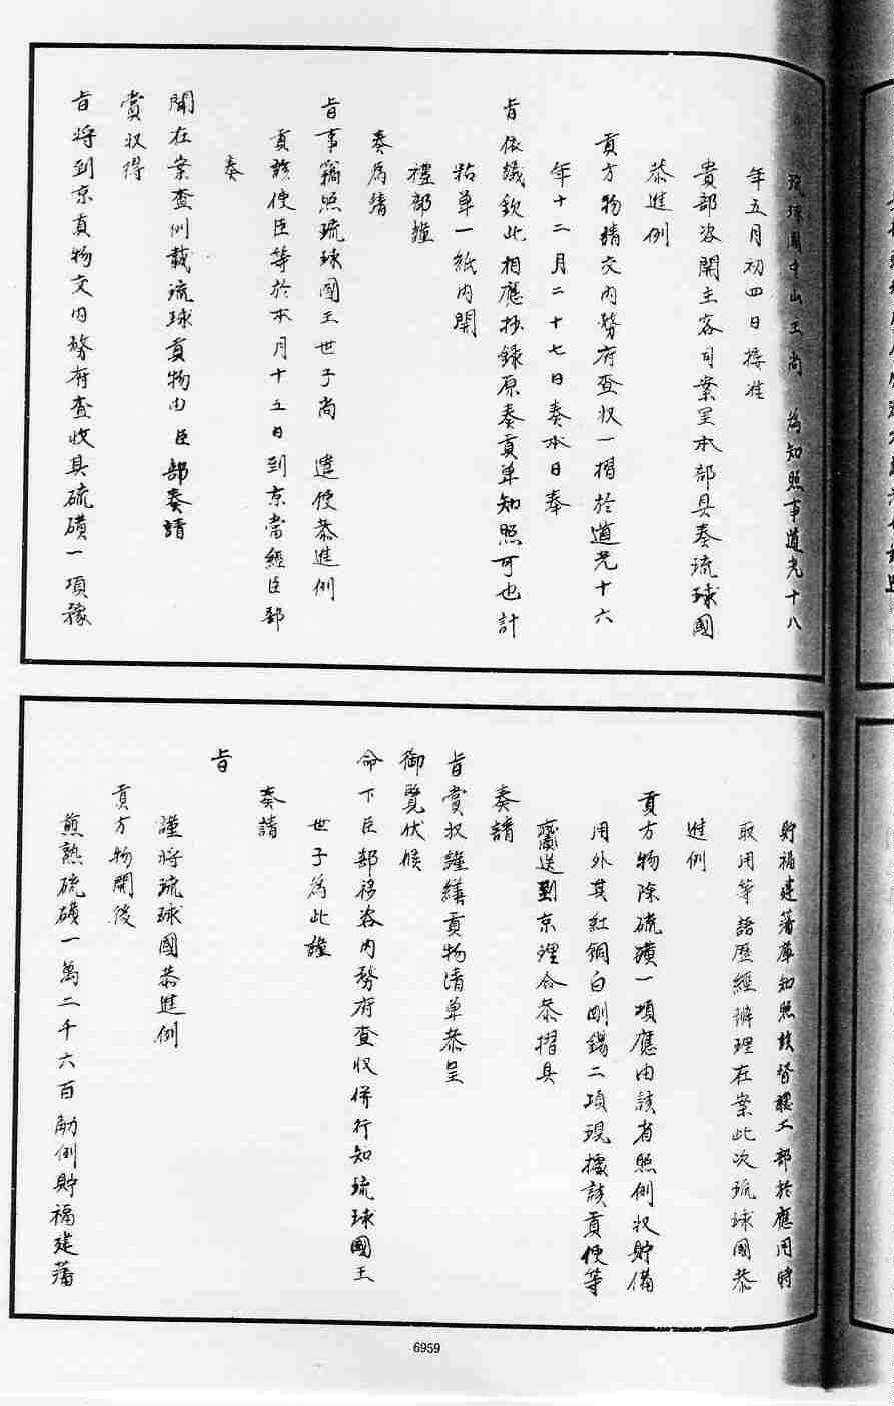 琉球國中山王尚　為知照事道光十八
年五月初四日接准
貴部咨開主客司案呈本部具奏琉球國
恭進例
貢方物請交內務府查收一摺於道光十六
年十二月二十七日奏本日奉
旨依議欽此相應抄錄原奏貢單知照可也計
粘單一紙內開
禮部謹
奏為請
旨事竊照琉球國王世子尚　遣使恭進例
貢該使臣等於本月十五日到京當經臣部
奏
聞在案查例載琉球貢物由臣部奏請
賞收得
旨將到京貢物交內務府查收其硫磺一項繇
貯福建藩庫知照該督撫工部於應用時
取用等語歷經辦理在案此次琉球國恭
進例
貢方物除硫磺一項應由該省照例收貯備
用外其紅銅白剛錫二項現據該貢使等
齎送到京理合恭摺具
奏請
旨賞收謹繕貢物清單恭呈
御覽伏候
命下臣部移咨內務府查收併行知琉球國王
世子為此謹
奏請
旨
謹將琉球國恭進例
貢方物開後
煎熟硫磺一萬二千六百觔例貯福建藩
6959